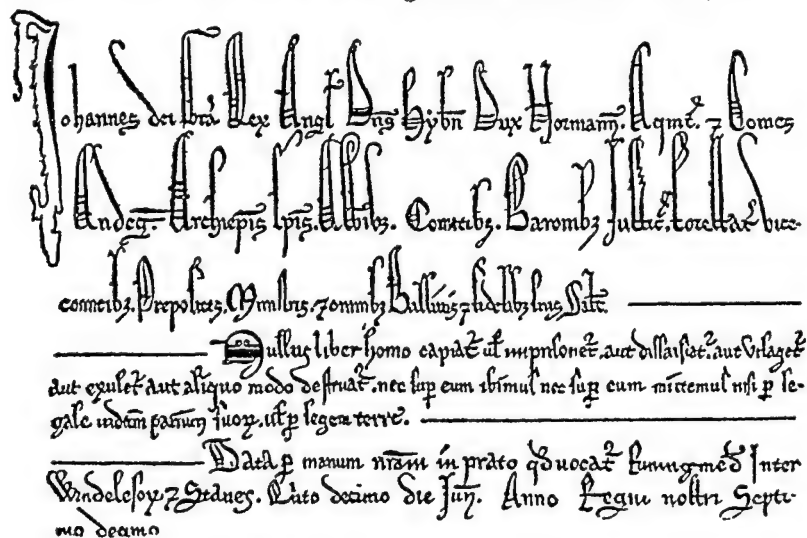 Johannes dei gra Rex Angl Dns Hybn Dux Normann. Aqnit. ⁊ Comes
Andeg. Archiepis Epis. Abbibz. Comitibz. Baronibz Justic. forestar vice-
comitibz. Prepositis. Ministris. ⁊ omnibz Ballivis ⁊ fidelibz suis Salt.
Nullus liber homo capiat vl imprisonet. aut dissaisiat. aut utlaget
aut exulet aut aliquo modo destruat. nec sup eum ibimus nec sup eum mittemus nisi p le-
gale iudim parium suorz. vl p legem terre.
Data p manum nram in prato qd vocat Runingmed Inter
Windelesorz ⁊ Stanes. Quto decimo die Jun. Anno Regni nostri Septi-
mo decimo